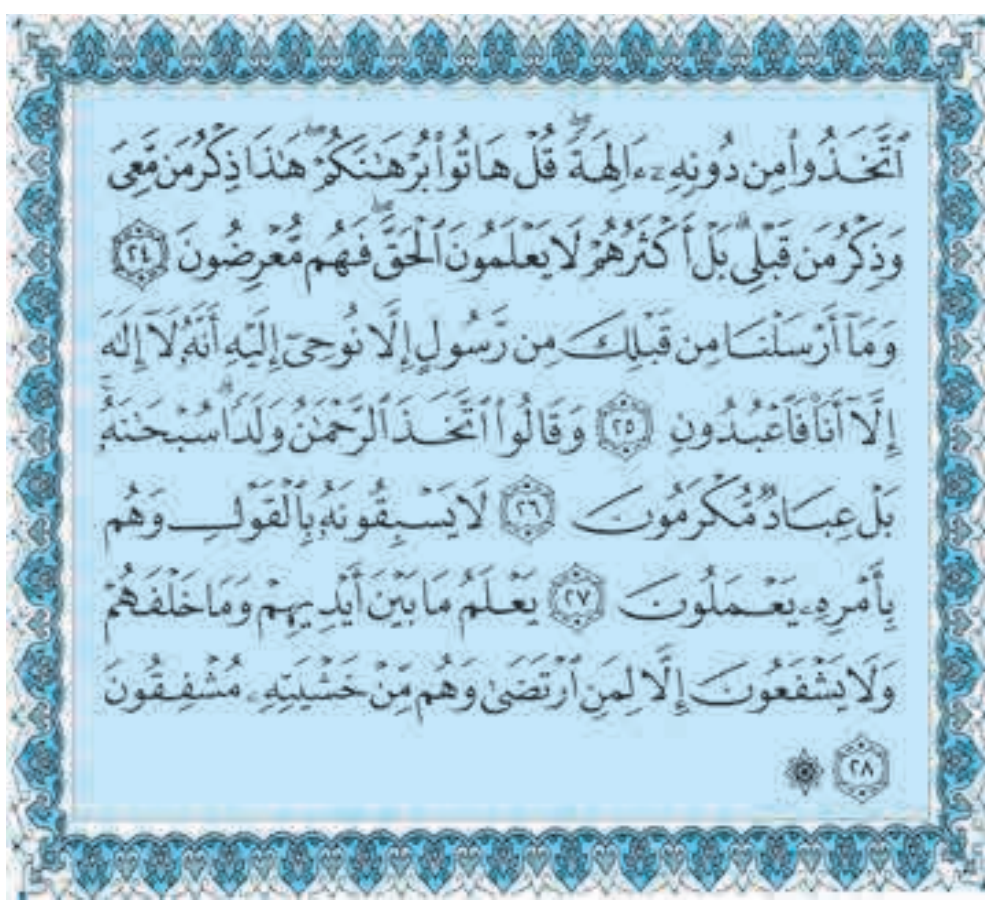 ٱتَّخَذُوا۟ مِن دُونِهِۦٓ ءَالِهَةً ۖ قُلْ هَاتُوا۟ بُرْهَـٰنَكُمْ ۖ هَـٰذَا ذِكْرُ مَن مَّعِىَ
وَذِكْرُ مَن قَبْلِى ۗ بَلْ أَكْثَرُهُمْ لَا يَعْلَمُونَ ٱلْحَقَّ ۖ فَهُم مُّعْرِضُونَ ٢٤
وَمَآ أَرْسَلْنَا مِن قَبْلِكَ مِن رَّسُولٍ إِلَّا نُوحِىٓ إِلَيْهِ أَنَّهُۥ لَآ إِلَـٰهَ
إِلَّآ أَنَا۠ فَٱعْبُدُونِ ٢٥ وَقَالُوا۟ ٱتَّخَذَ ٱلرَّحْمَـٰنُ وَلَدًا ۗ سُبْحَـٰنَهُۥ ۚ
بَلْ عِبَادٌ مُّكْرَمُونَ ٢٦ لَا يَسْبِقُونَهُۥ بِٱلْقَوْلِ وَهُم
بِأَمْرِهِۦ يَعْمَلُونَ ٢٧ يَعْلَمُ مَا بَيْنَ أَيْدِيهِمْ وَمَا خَلْفَهُمْ
وَلَا يَشْفَعُونَ إِلَّا لِمَنِ ٱرْتَضَىٰ وَهُم مِّنْ خَشْيَتِهِۦ مُشْفِقُونَ
٢٨